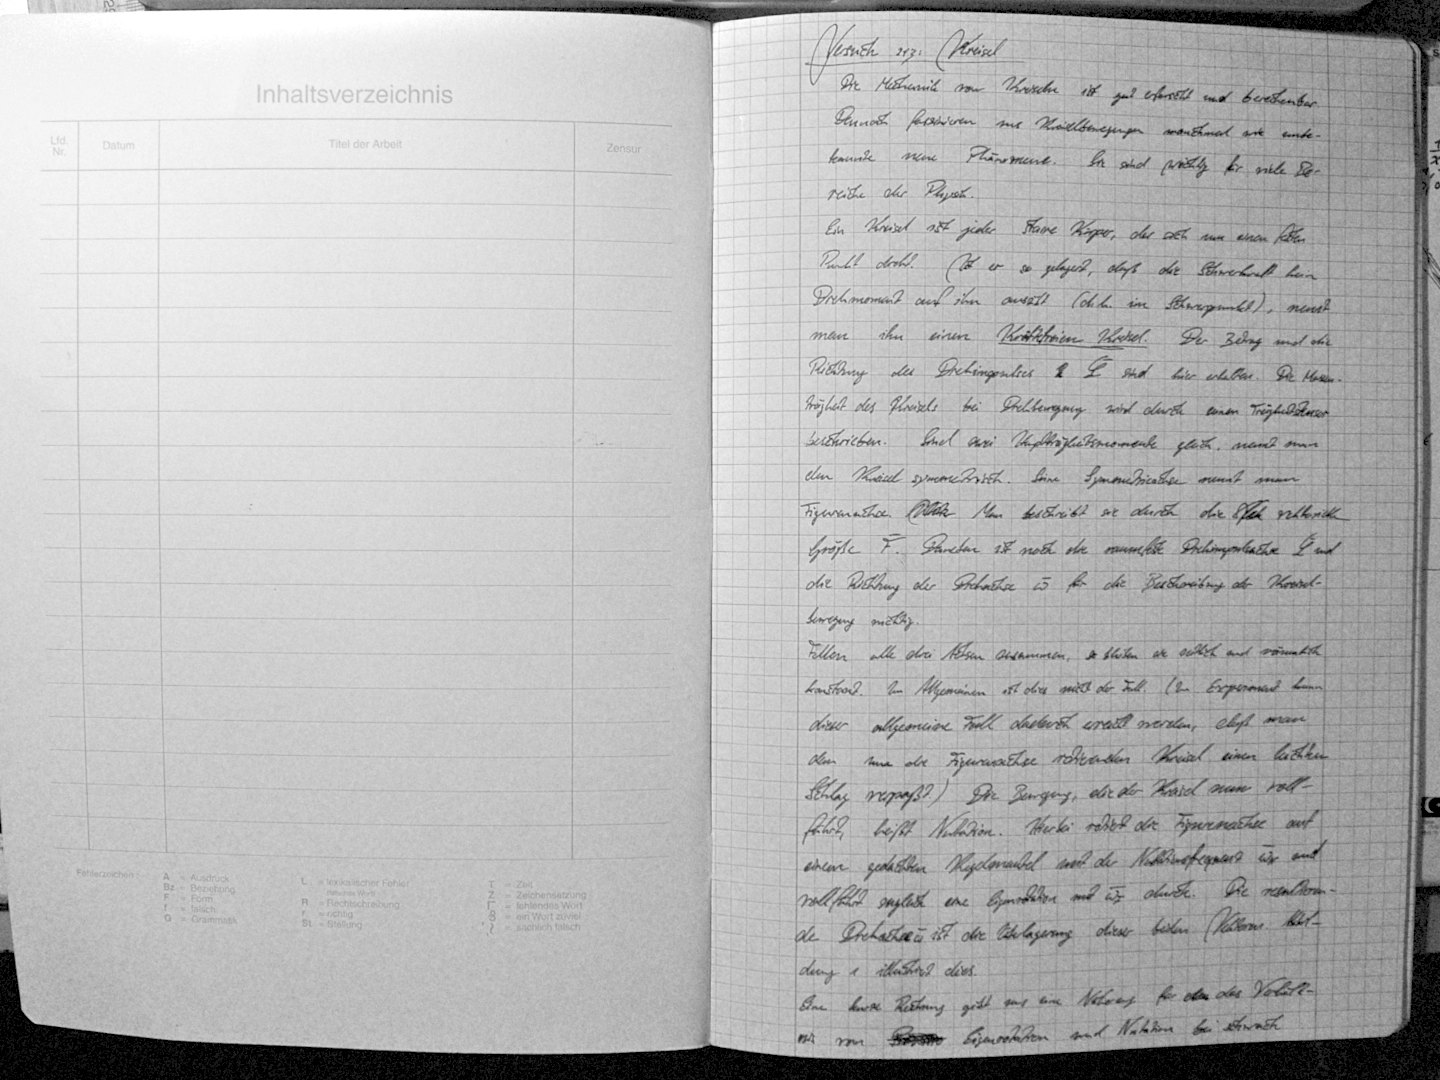 Inhaltsverzeichnis
Lfd. Nr.
Datum
Titel der Arbeit
Zensur
Fehlerzeichen:
A = Ausdruck
Bz = Beziehung
F = Form
f = falsch
G = Grammatik
L = lexikalischer Fehler
R = Rechtschreibung
r = richtig
St = Stellung
T = Zeit
Z = Zeichensetzung
Γ = fehlendes Wort
= ein Wort zuviel
= sachlich falsch
Versuch 213: Kreisel
Die Mechanik von Kreiseln ist gut erforscht und berechenbar
Dennoch faszinieren uns Kreiselbewegungen manchmal wie unbe-
kannte neue Phänomene. Sie sind wichtig für viele Be-
reiche der Physik.
Ein Kreisel ist jeder starre Körper, der sich um einen festen
Punkt dreht. Ist er so gelagert, daß die Schwerkraft kein
Drehmoment auf ihn ausübt (d.h. im Schwerpunkt), nennt
man ihn einen Kräftefreien Kreisel. Der Betrag und die
Richtung des Drehimpulses L sind hier erhalten. Die Massen-
trägheit des Kreisels bei Drehbewegung wird durch einen Trägheitstensor
beschrieben. Sind zwei Hauptträgheitsmomente gleich, nennt man
den Kreisel symmetrisch. Seine Symmetrieachse nennt man
Figurenachse. Man beschreibt sie durch die vektorielle
Größe F. Daneben ist noch die raumfeste Drehimpulsachse L und
die Richtung der Drehachse ω für die Beschreibung der Kreisel-
bewegung wichtig.
Fallen alle drei Achsen zusammen, so bleiben sie zeitlich und räumlich
konstant. Im Allgemeinen ist dies nicht der Fall. (Im Experiment kann
dieser allgemeine Fall dadurch erreicht werden, daß man
dem um die Figurenachse rotierenden Kreisel einen leichten
Schlag verpaßt.) Die Bewegung, die der Kreisel nun voll-
führt, heißt Nutation. Hierbei rotiert die Figurenachse auf
einem gedachten Kegelmantel mit der Nutationsfrequenz ω und
vollführt zugleich eine Eigenrotation mit ω durch. Die resultieren-
de Drehachse ω ist die Überlagerung dieser beiden Vektoren. Abbil-
dung 1 illustriert dies.
Eine kurze Rechnung gibt uns eine Näherung für das Verhält-
nis von Eigenrotation und Nutation bei schwach